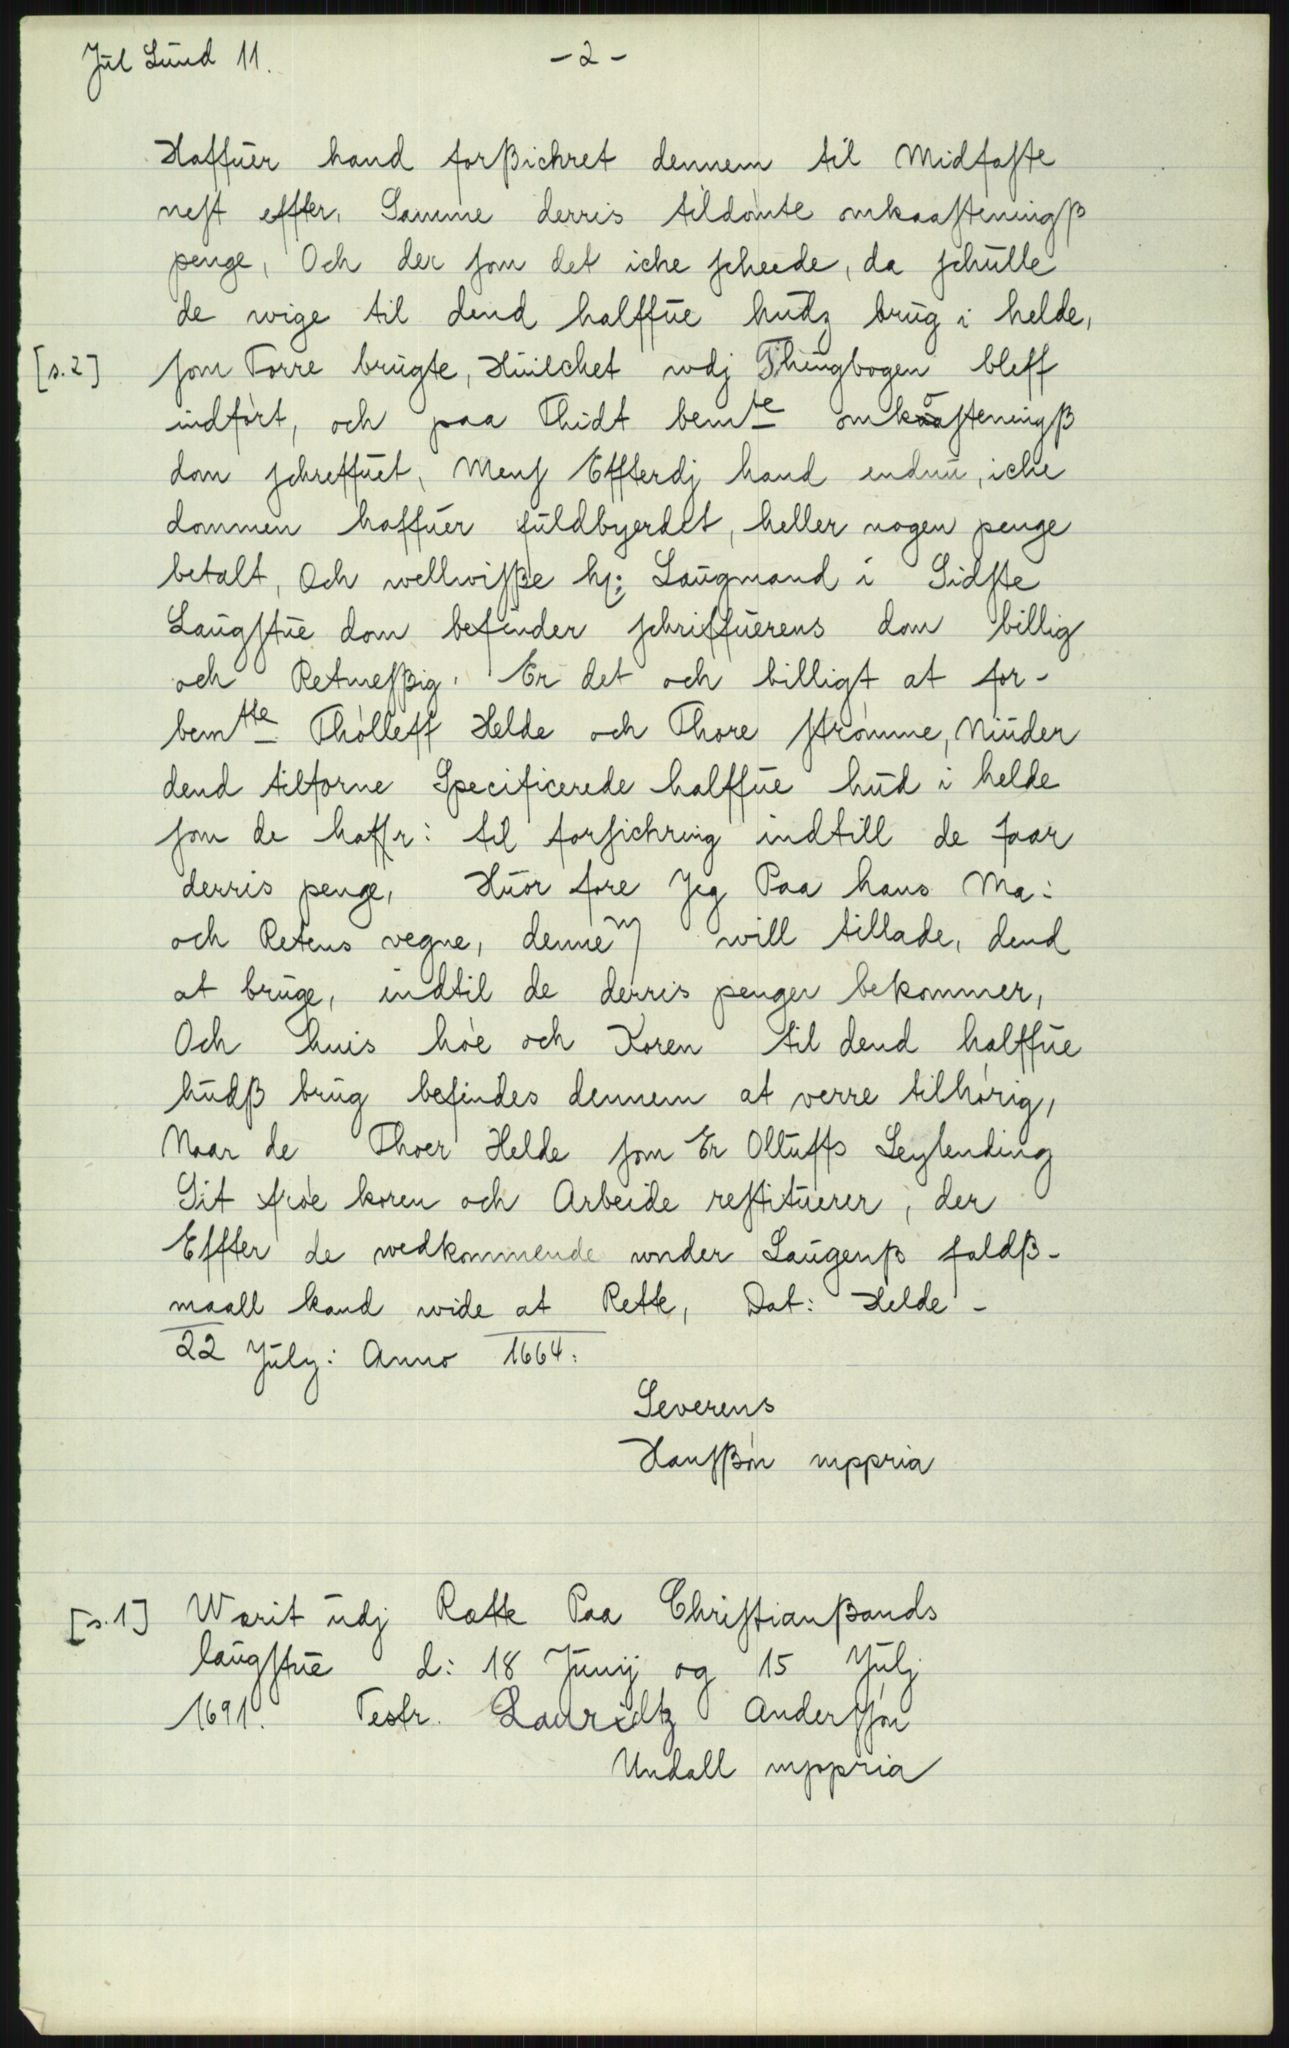 Jul Lund 11. - 2 -
Haffuer hand forßichret dennem til Midfaste
nest effter, Samme derris tildömte omkaasteningß
penge, Och der som det iche scheede, da schulle
de wige til dend halffue hudz brug i helde,
[s.2] som Torre brugte, Huilchet wdj Thingbogen bleff
indfört, och paa Thidt bemte omkaasteningß
dom schreffuet, Mens Effterdj hand endnu, iche
dommen haffuer fuldbyerdet, heller nogen penge
betalt, Och wellwisße hr: Laugmand i Sidste
Laugstue dom befinder schriffuerens dom billig
och Retmesßig. Er det och billigt at for-
bemtte Thölleff Helde och Thore Strömme, Niuder
dend tilforne Specificerede halffue hud i helde
som de haffr: til forsichring indtill de faar
derris penge, Huor fore Jeg Paa hans Ma:
och Retens vegne, dennem will tillade, dend
at bruge, indtil de derris penger bekommer,
Och huis höe och Koren til dend halffue
hudß brug befindes dennem at verre tilhörig,
Naar de Thoer Helde som Er Olluffs Leylending
Sit fröe koren och Arbeide restituerer, der
Effter de wedkommende wnder Laugenß faldß-
maall kand wide at Rette, Dat: Helde -
22 July: Anno 1664:
Severens
Hansßön mppria
[s.1] Werit udj Rette Paa Christianßands
laugstue d: 18 Junij og 15 Julj
1691. Testr. Lauridtz Anderssön
Undall mppria